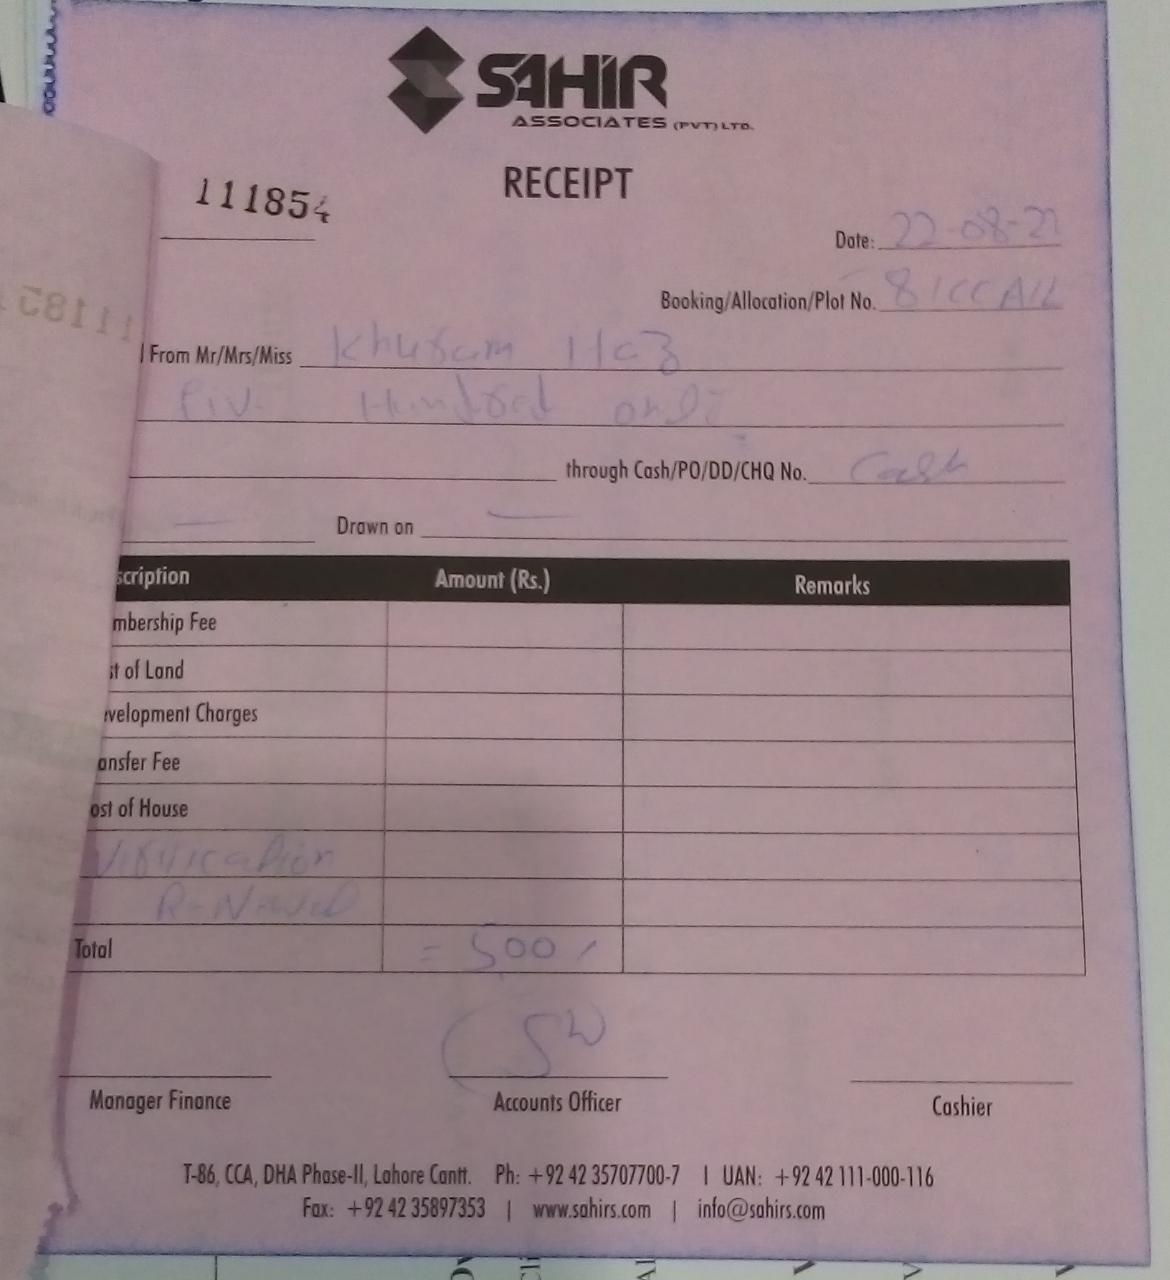 SAHIR
ASSOCIATES (PVT) LTD.
RECEIPT
111854
Date: 22-08-21
Booking/Allocation/Plot No.
From Mr/Mrs/Miss Khuram
Hundred only
through Cash/PO/DD/CHQ No. Cash
Drawn on —
scription Amount (Rs.) Remarks
mbership Fee
st of Land
velopment Charges
ansfer Fee
ost of House
Total = 500/
Manager Finance Accounts Officer Cashier
T-86, CCA, DHA Phase-II, Lahore Cantt. Ph: +92 42 35707700-7 | UAN: +92 42 111-000-116
Fax: +92 42 35897353 | www.sahirs.com | info@sahirs.com